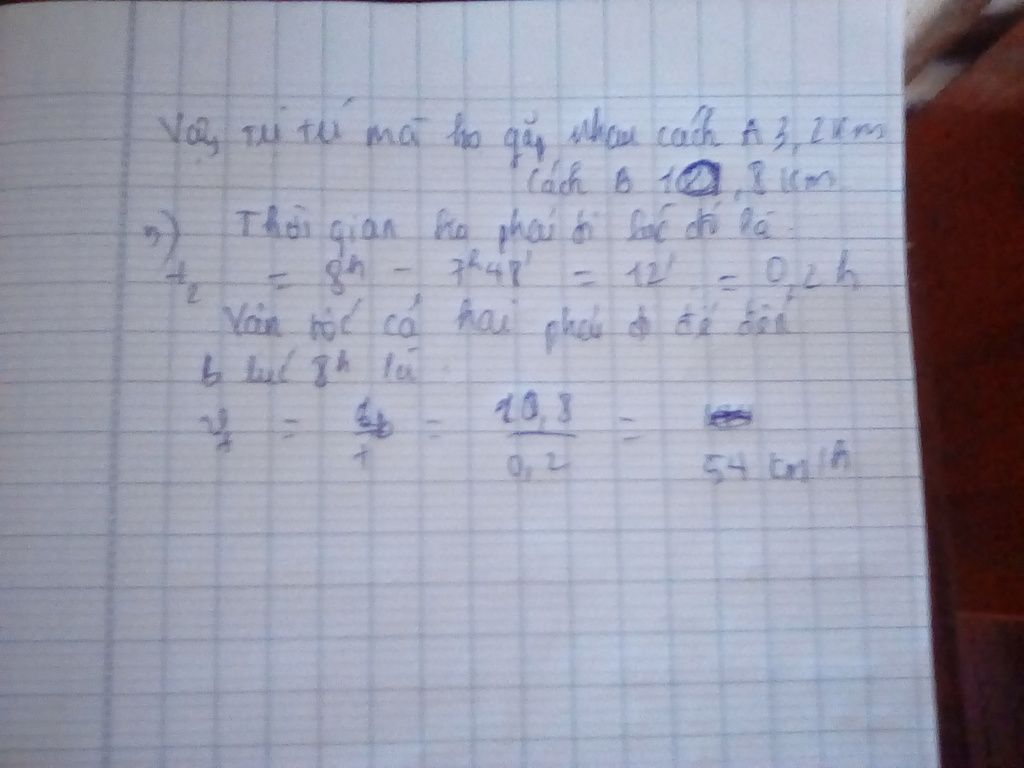 Vậy vị trí mà họ gặp nhau cách A 3,2 Km
cách B 10,8 Km
Thời gian họ phải đi lúc đó là
t2 = 8h - 7h48' = 12' = 0,2h
Vận tốc cả hai phải đi để đến
B lúc 8h là
= = 10,8 / 0,2 = 54 km/h